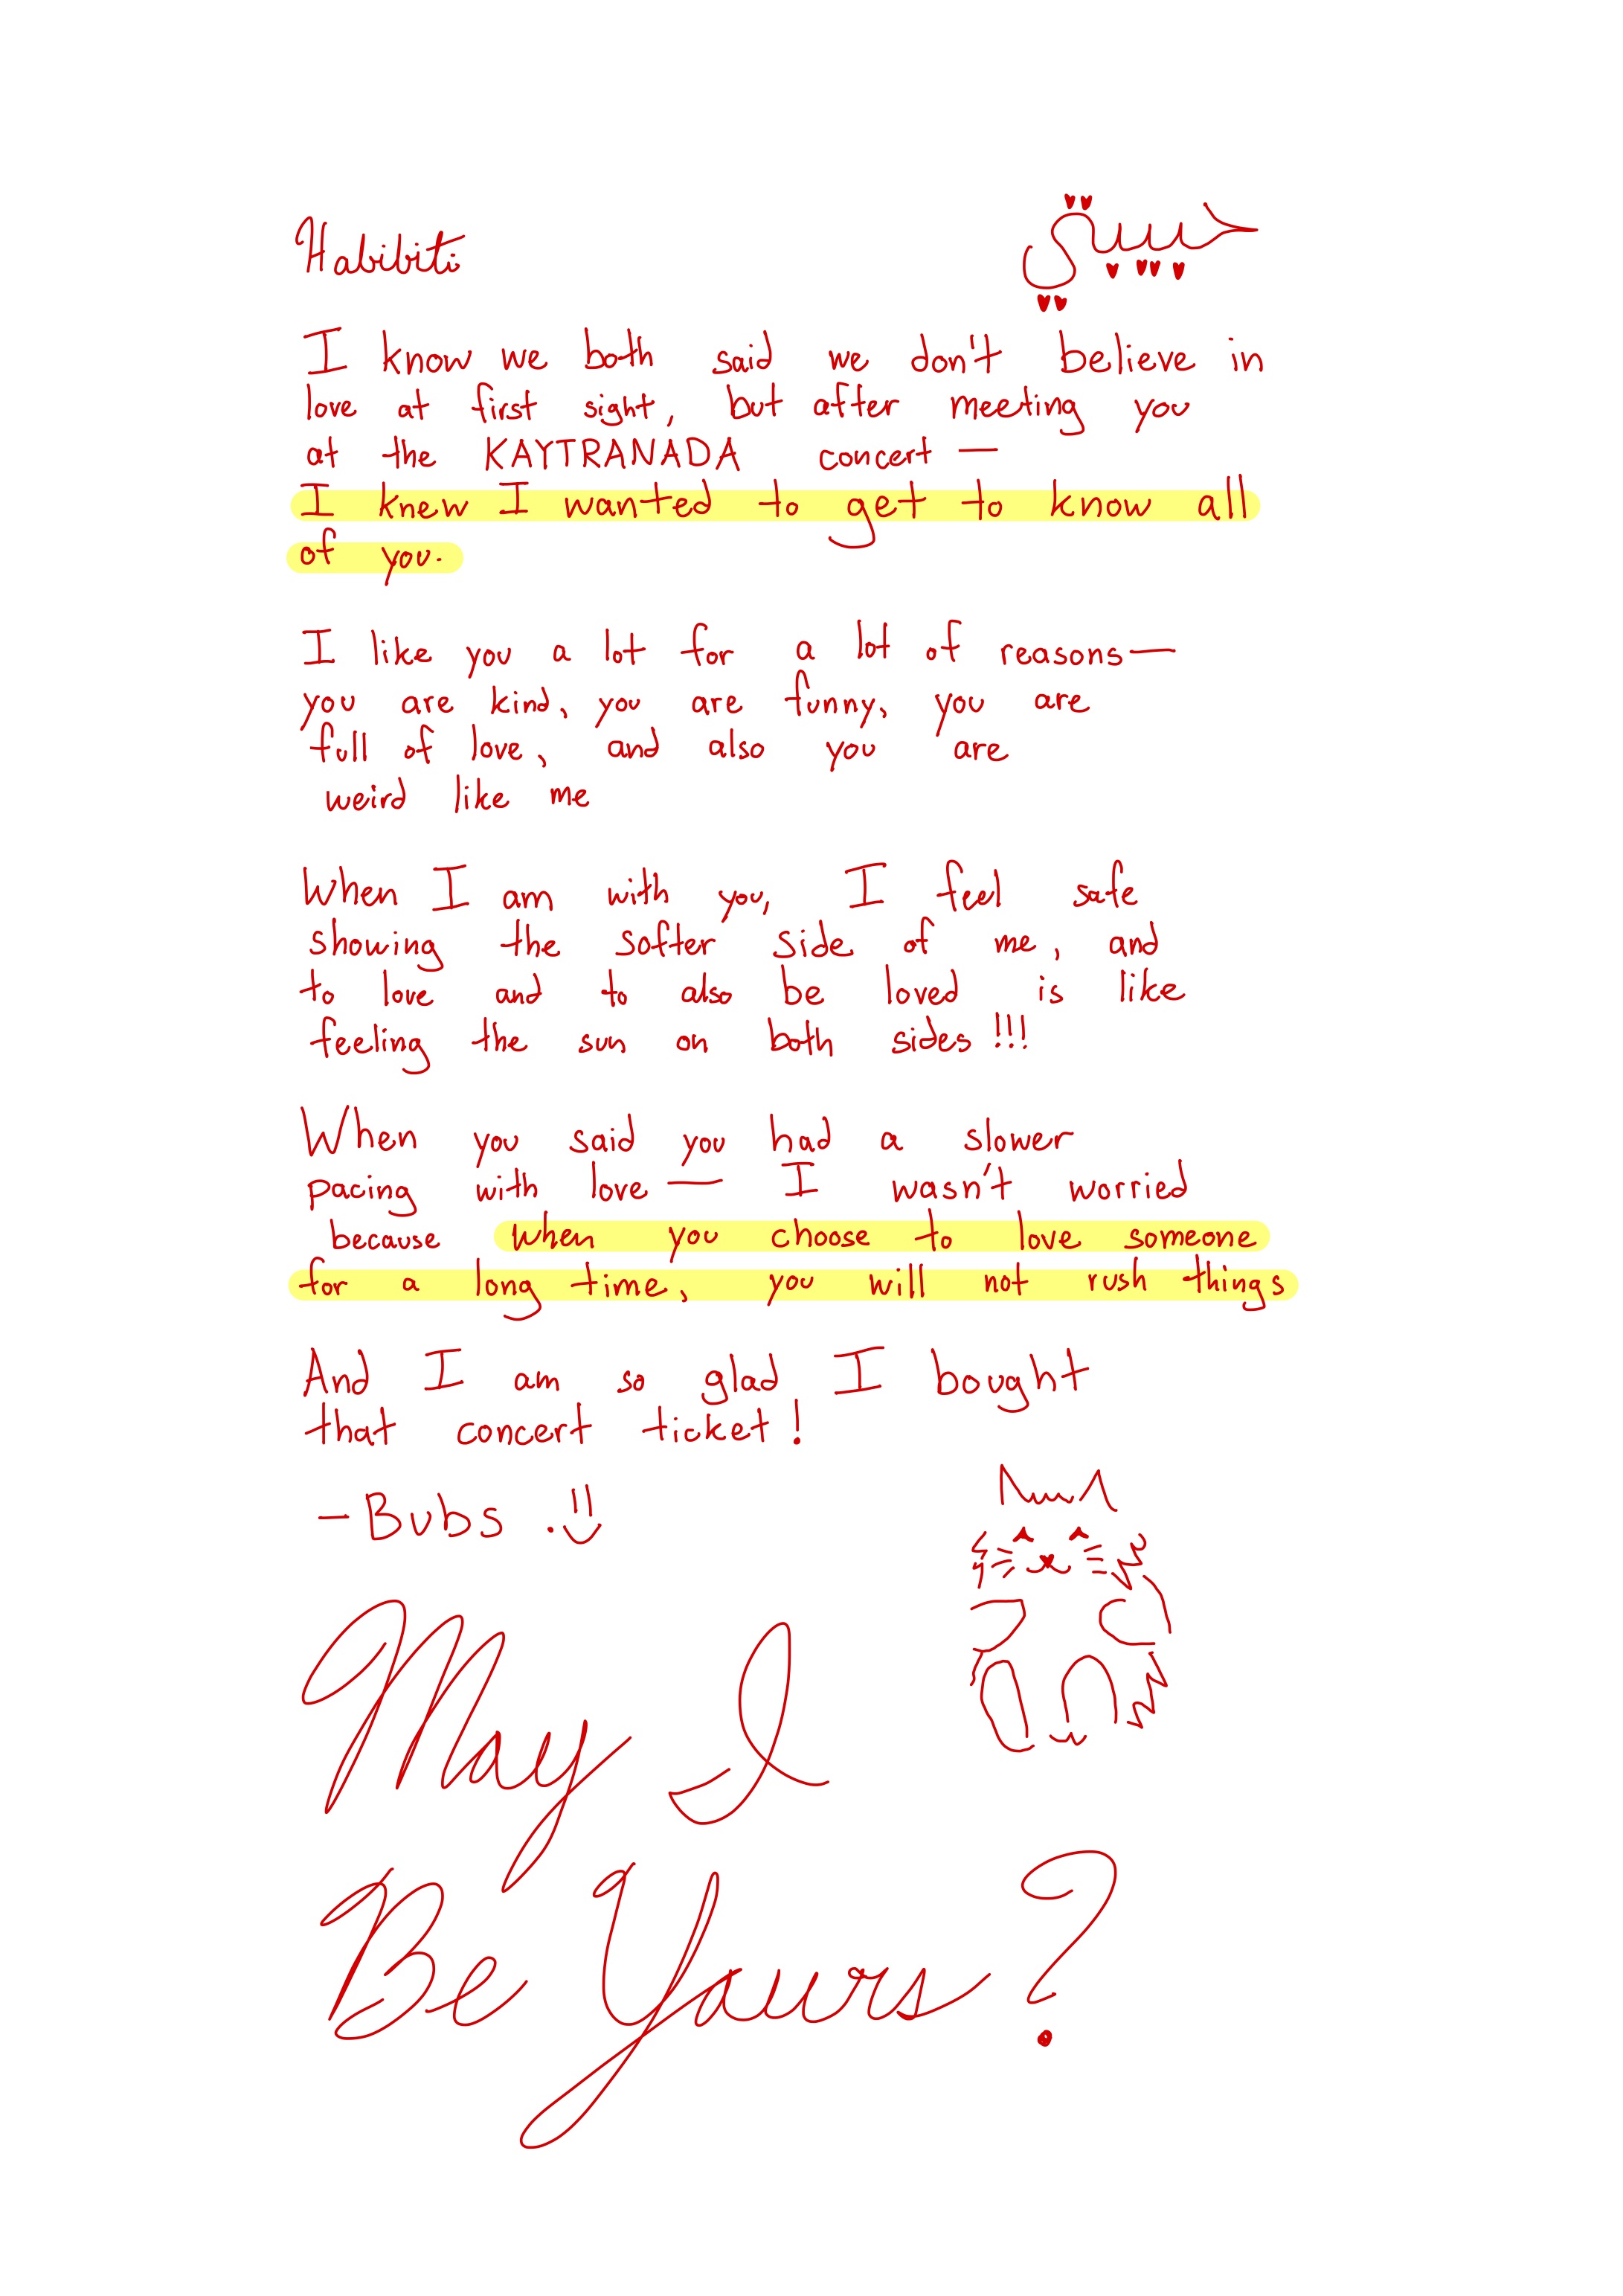 Habibiti
حبيبتي
I know we both said we don't believe in
love at first sight, but after meeting you
at the KAYTRANADA concert —
I knew I wanted to get to know all
of you.
I like you a lot for a lot of reasons—
you are kind, you are funny, you are
full of love, and also you are
weird like me
When I am with you, I feel safe
showing the softer side of me, and
to love and to also be loved is like
feeling the sun on both sides!!!
When you said you had a slower
pacing with love — I wasn't worried
because when you choose to love someone
for a long time, you will not rush things
And I am so glad I bought
that concert ticket!
—Bubs :)
May I
Be Yours?